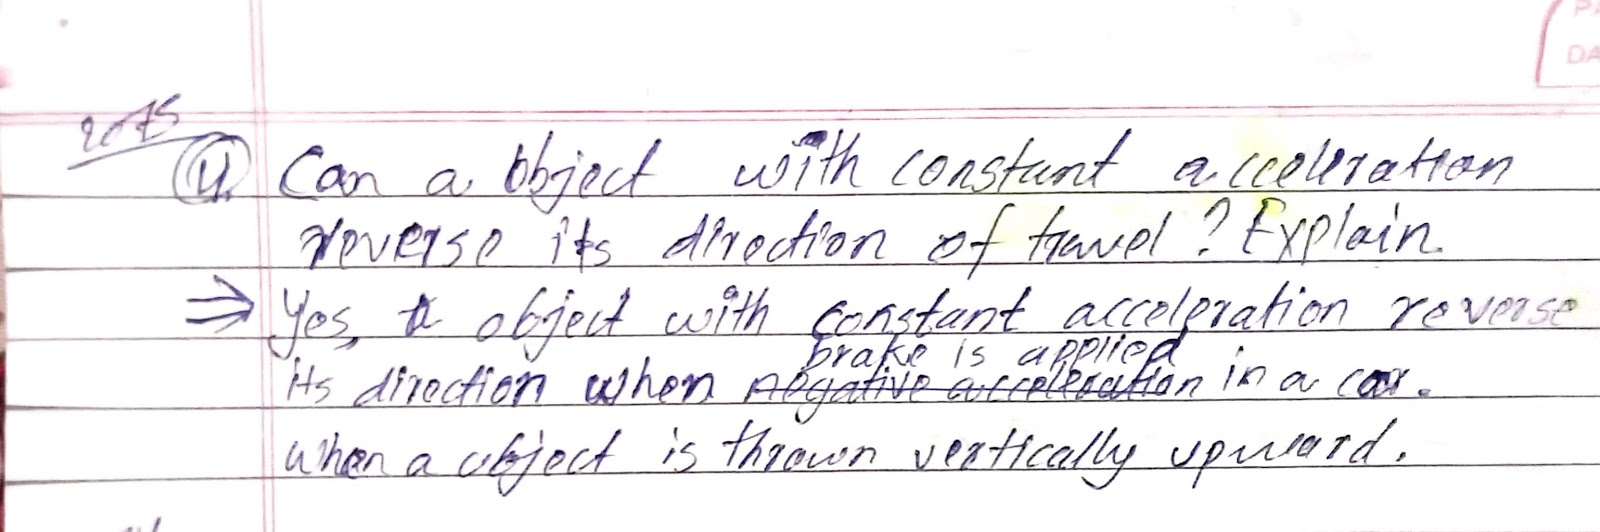 PA
DA
2075
4. Can a object with constant acceleration
reverse its direction of travel? Explain.
⇒ Yes, a object with constant acceleration reverse
brake is applied
its direction when negative acceleration in a car.
when a object is thrown vertically upward.